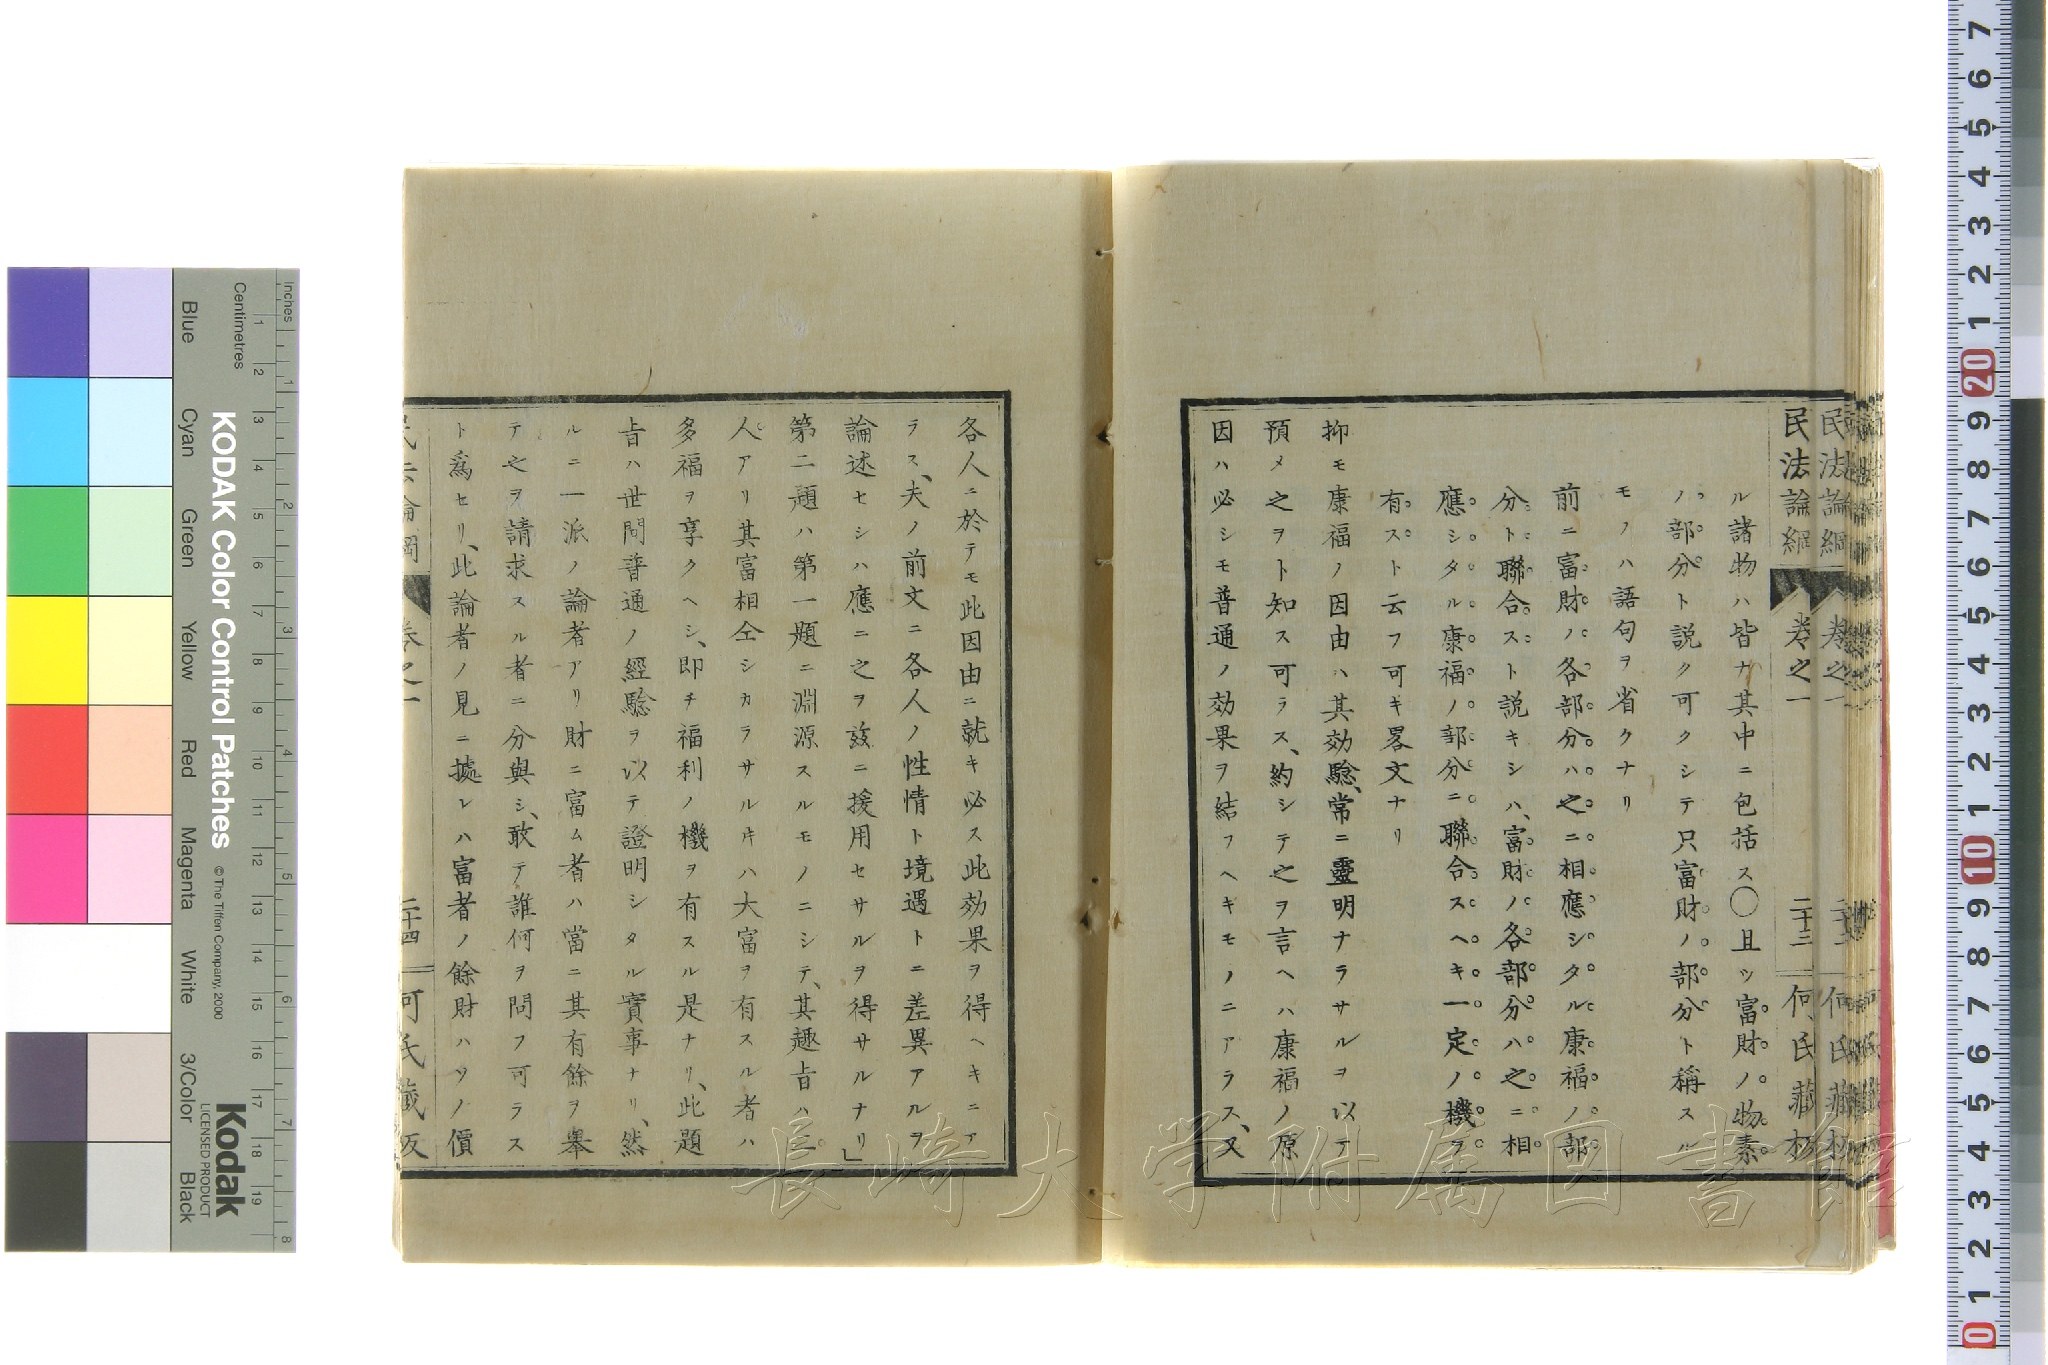 民法論綱
卷之一
二十三
何氏藏板
ル諸物ハ皆ナ其中ニ包括ス〇且ツ富財ノ物素
ノ部分ト説ク可クシテ只富財ノ部分ト稱スル
モノハ語句ヲ省クナリ
前ニ富財ノ各部分ハ之ニ相應シタル康福ノ部
分ト聯合スト説キシハ、富財ノ各部分ハ之ニ相
應シタル康福ノ部分ニ聯合スヘキ一定ノ機ヲ
有スト云フ可キ畧文ナリ
抑モ康福ノ因由ハ其効驗、常ニ靈明ナラサルヲ以テ
預メ之ヲト知ス可ラス、約シテ之ヲ言ヘハ康福ノ原
因ハ必シモ普通ノ効果ヲ結フヘキモノニアラス、又
各人ニ於テモ此因由ニ就キ必ス此効果ヲ得ヘキニア
ラス、夫ノ前文ニ各人ノ性情ト境遇トニ差異アルヲ
論述セシハ應ニ之ヲ玆ニ援用セサルヲ得サルナリ」
第二題ハ第一題ニ淵源スルモノニシテ、其趣旨ハ二
人アリ其富相仝シカラサル𪜈ハ大富ヲ有スル者ハ
多福ヲ享クヘシ、即チ福利ノ機ヲ有スル是ナリ、此題
旨ハ世間普通ノ經驗ヲ以テ證明シタル實事ナリ、然
ルニ一派ノ論者アリ財ニ富ム者ハ當ニ其有餘ヲ擧
テ之ヲ請求スル者ニ分與シ、敢テ誰何ヲ問フ可ラス
ト爲セリ、此論者ノ見ニ據レハ富者ノ餘財ハソノ價
民法論綱
卷之一
二十四
何氏藏板
長崎大学附属図書館
KODAK Color Control Patches
© The Tiffen Company, 2000
Kodak
LICENSED PRODUCT
Inches
Centimetres
Blue
Cyan
Green
Yellow
Red
Magenta
White
3/Color
Black